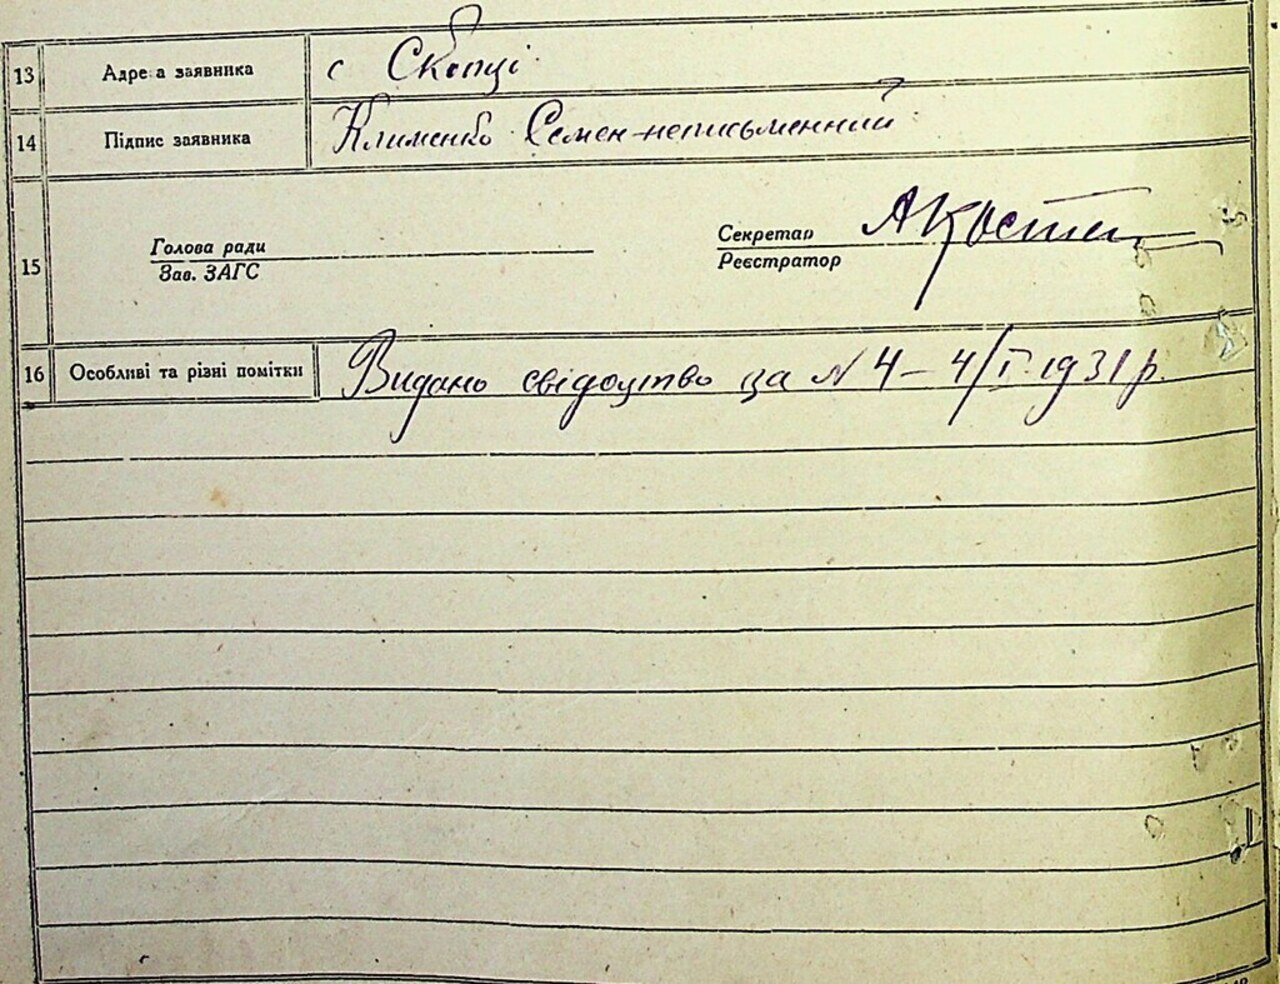 13 Адреса заявника с Скопці
14 Підпис заявника Клименко Семен-неписьменний
15 Голова ради Секретар
Зав. ЗАГС Реєстратор
16 Особливі та різні помітки Видано свідоцтво за N 4 – 4/I 1931 р.